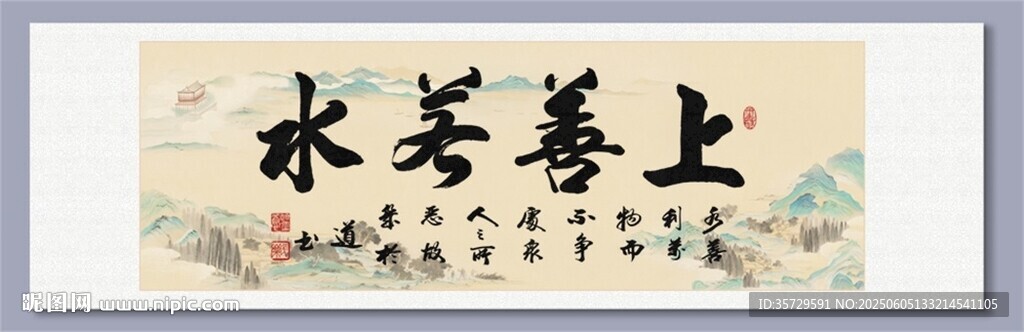 上善若水
水善
利萬
物而
不争
處衆
人之所
惡故
幾於
道
书
昵图网 www.nipic.com
ID:35729591 NO:20250605133214541105